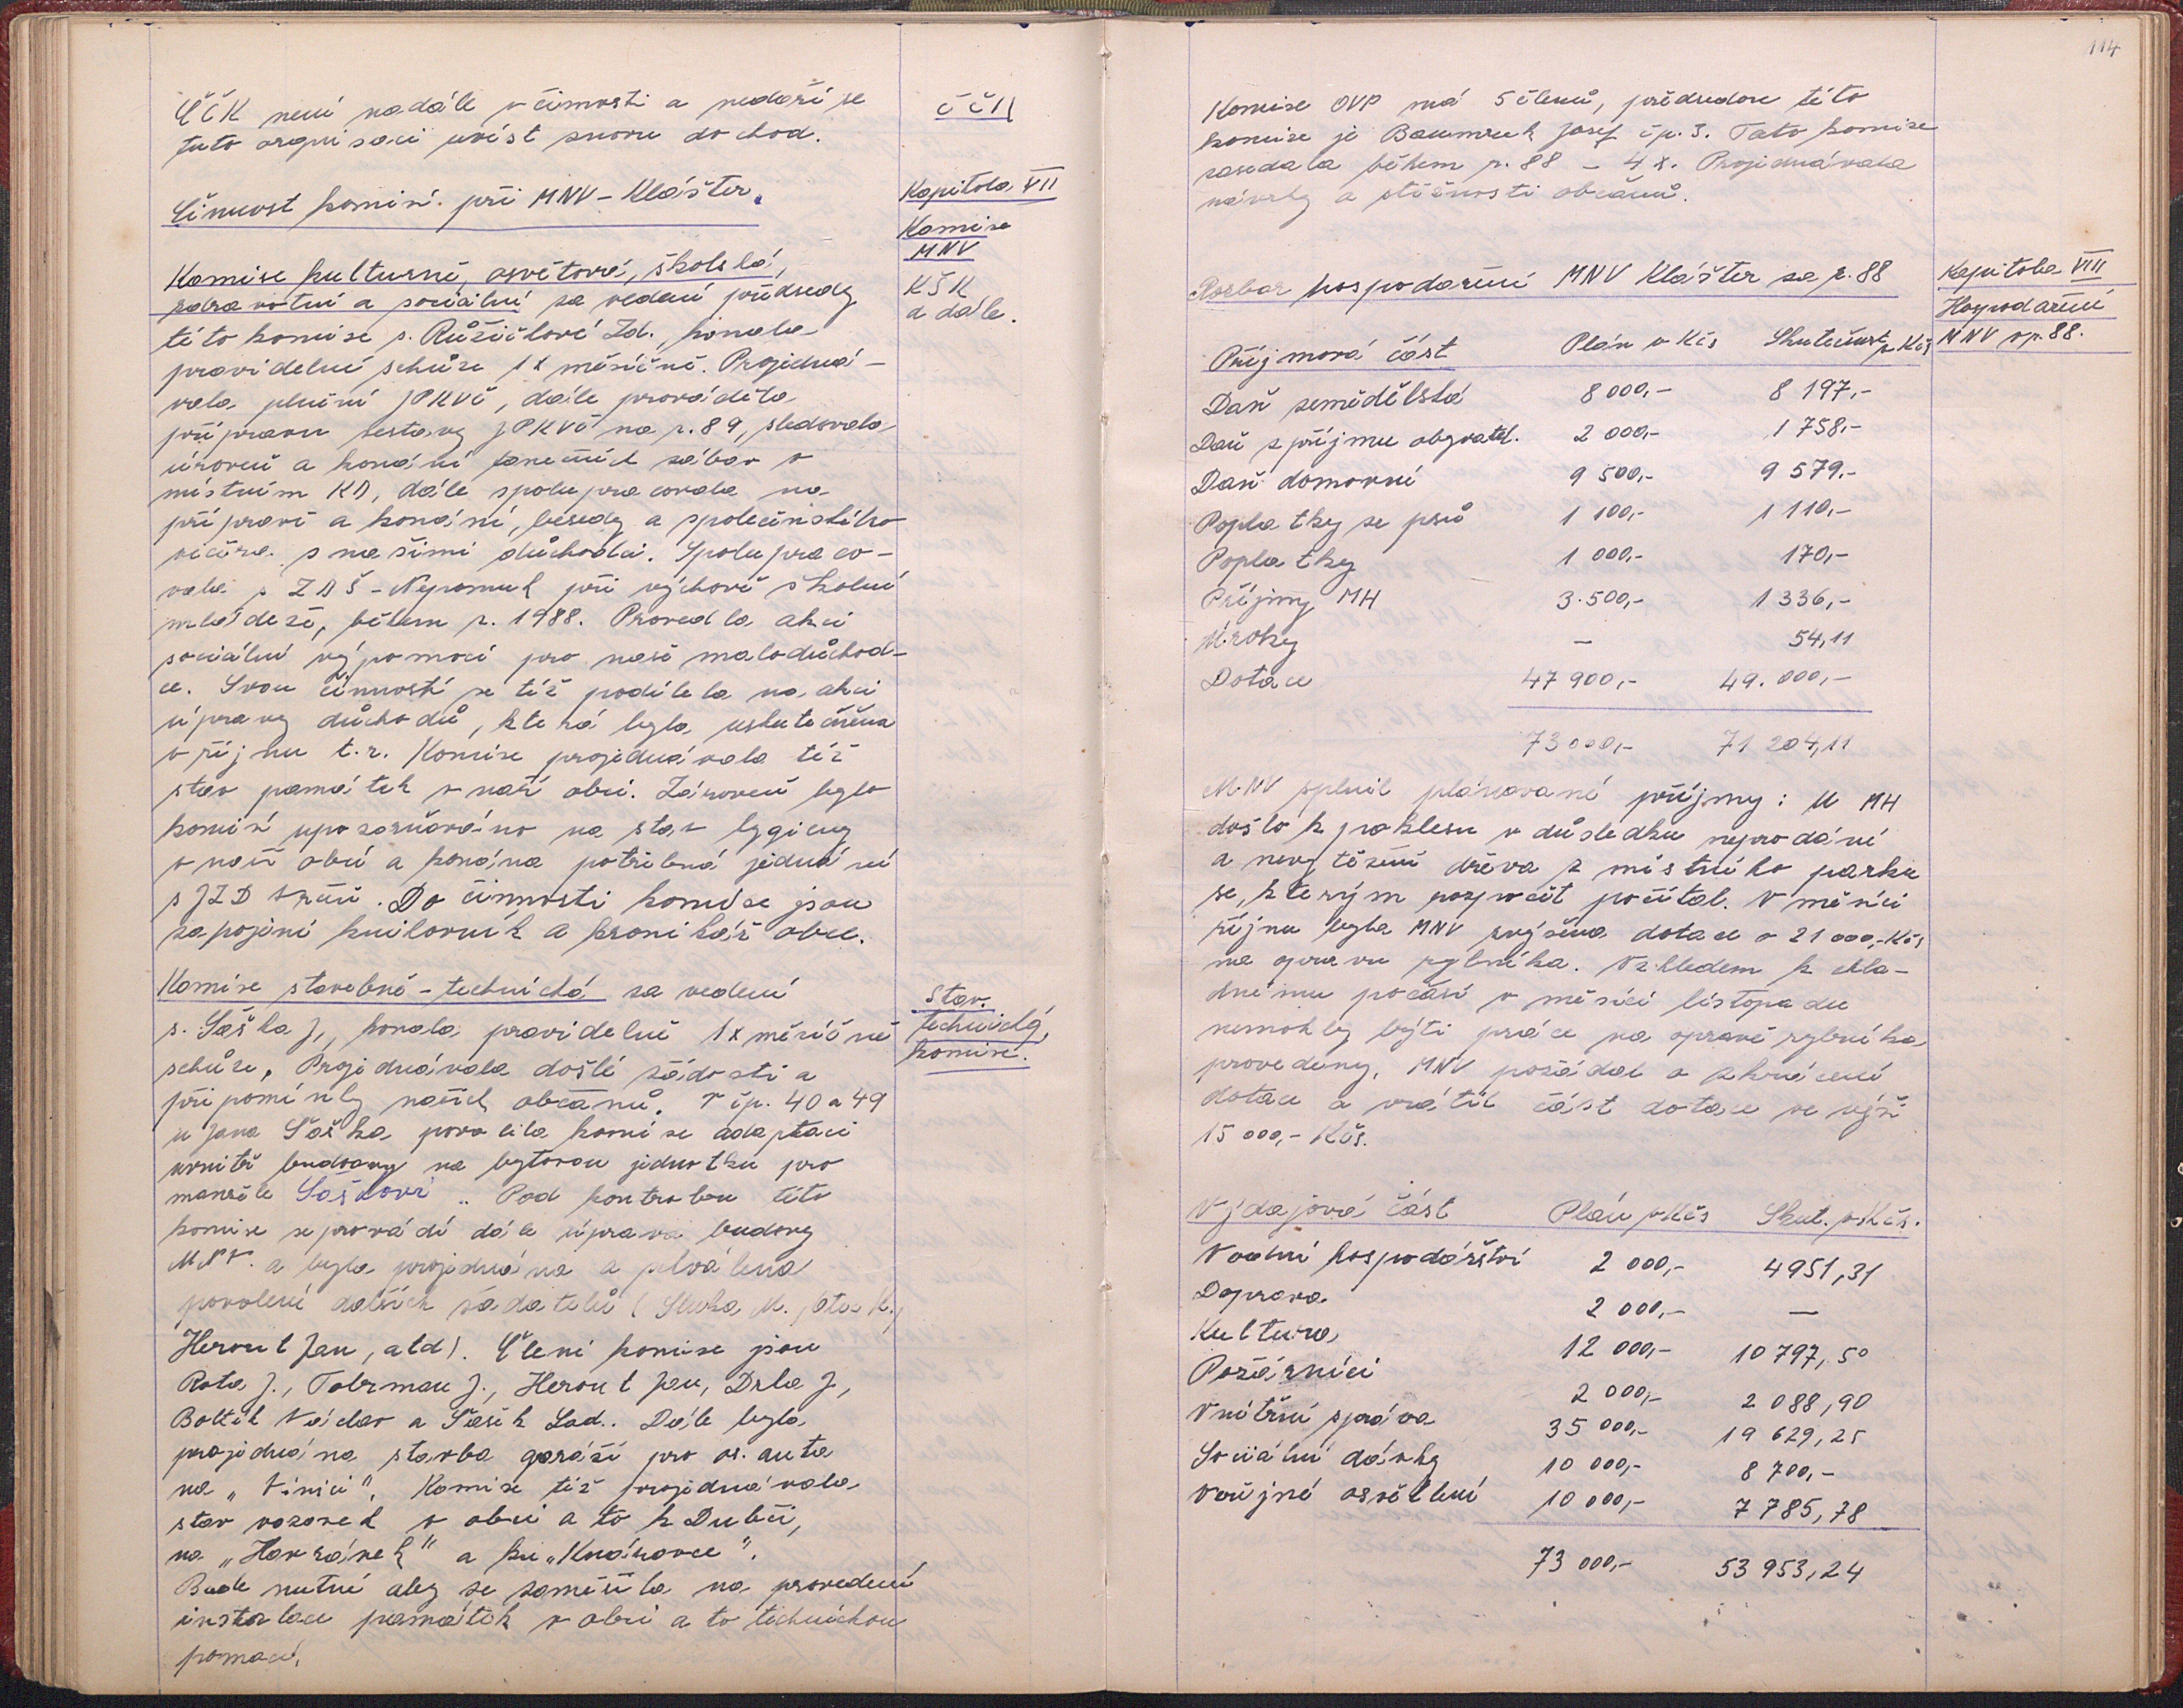 ČČK není nadále v činnosti a nedaří se
tuto organisaci uvést znovu do chod.
ČČK
Činnost komisí při MNV - Klášter.
Kapitola VII
Komise
MNV
Komise kulturně, osvětová, školská,
zdravotní a sociální za vedení předsedy
této komise s. Růžičkové Zd., konala
pravidelné schůze 1x měsíčně. Projedná-
vala plnění JPKVČ, dále prováděla
přípravu sestavy JPKVČ na r. 89, sledovala
úroveň a konání tanečních zábav v
místním KD, dále spolupracovala na
přípravě a konání, besedy a společenského
večera s našimi důchodci. Spolupraco-
vala s ZDŠ - Nepomuk při výchově školní
mládeže, během r. 1988. Provedla akci
sociální výpomoci pro naše malodůchod-
ce. Svou činností se též podílela na akci
úpravy důchodů, která byla uskutečněna
v říjnu t.r. Komise projednávala též
stav památek v naší obci. Zároveň bylo
komisí upozorňováno na stav hygieny
v naší obci a konána potřebná jednání
s JZD Vrčeň. Do činnosti komise jsou
zapojeni knihovník a kronikář obce.
KŠK
a dále.
Komise stavebně - technická za vedení
s. Saška J., konala pravidelně 1x měsíčně
schůze. Projednávala došlé žádosti a
připomínky našich občanů. V čp. 40 a 49
u Jana Saška povolila komise adaptaci
uvnitř budovy na bytovou jednotku pro
manžele Saškovi.. Pod kontrolou této
komise se provádí dále úprava budovy
MNV. a byla projednána a schválena
povolení dalších žadatelů (Sluka M.
Herout Jan, atd). Členi komise jsou
Rota J., Tobrman J., Herout Jan, Drla J,
Boltík Václav a Sašek Lad.. Dále byla
projednána stavba garáží pro os. auta
na „Vinici". Komise též projednávala
stav vozovek v obci a to k Dubči,
na „Havránek" a ku „Knárovce".
Bude nutné aby se zaměřila na provedení
instalace památek v obci a to technickou
pomocí.
Stav.
technická
komise.
114
Komise OVP má 5 členů, předsedou této
komise je Baumruk Josef čp. 3. Tato komise
zasedala během r. 88 - 4 x. Projednávala
návrhy a stížnosti občanů.
Rozbor hospodaření MNV Klášter za r. 88
Kapitola VIII
Hospodaření
MNV v r. 88.
Příjmová část Plán v Kčs Skutečnost v Kčs
Daň zemědělská 8 000,- 8 197,-
Daň z příjmu obyvatel. 2 000,- 1 758,-
Daň domovní 9 500,- 9 579.-
Poplatky ze psů 1 100,- 1 110,-
Poplatky 1 000,- 170,-
Příjmy MH 3.500,- 1 336,-
Úroky — 54,11
Dotace 47 900,- 49.000,-
73 000,- 71 204,11
MNV splnil plánované příjmy: U MH
došlo k poklesu v důsledku neprodání
a nevytěžení dřeva z místního parku
se, kterým rozpočet počítal. V měsíci
říjnu byla MNV zvýšena dotace o 21 000,-Kčs
na opravu rybníka. Vzhledem k chla-
dnému počasí v měsíci listopadu
nemohly býti práce na opravě rybníka
provedeny, MNV požádal o zkrácení
dotace a vrátil část dotace ve výši
15 000,- Kčs.
Výdajová část Plán v Kčs Skut. v Kčs.
Vodní hospodářství 2 000,- 4951,31
Doprava 2 000,- —
Kultura 12 000,- 10 797,50
Požárníci 2 000,- 2 088,90
Vnitřní správa 35 000,- 19 629,25
Sociální dávky 10 000,- 8 700,-
Veřejné osvětlení 10 000,- 7 785,78
73 000,- 53 953,24